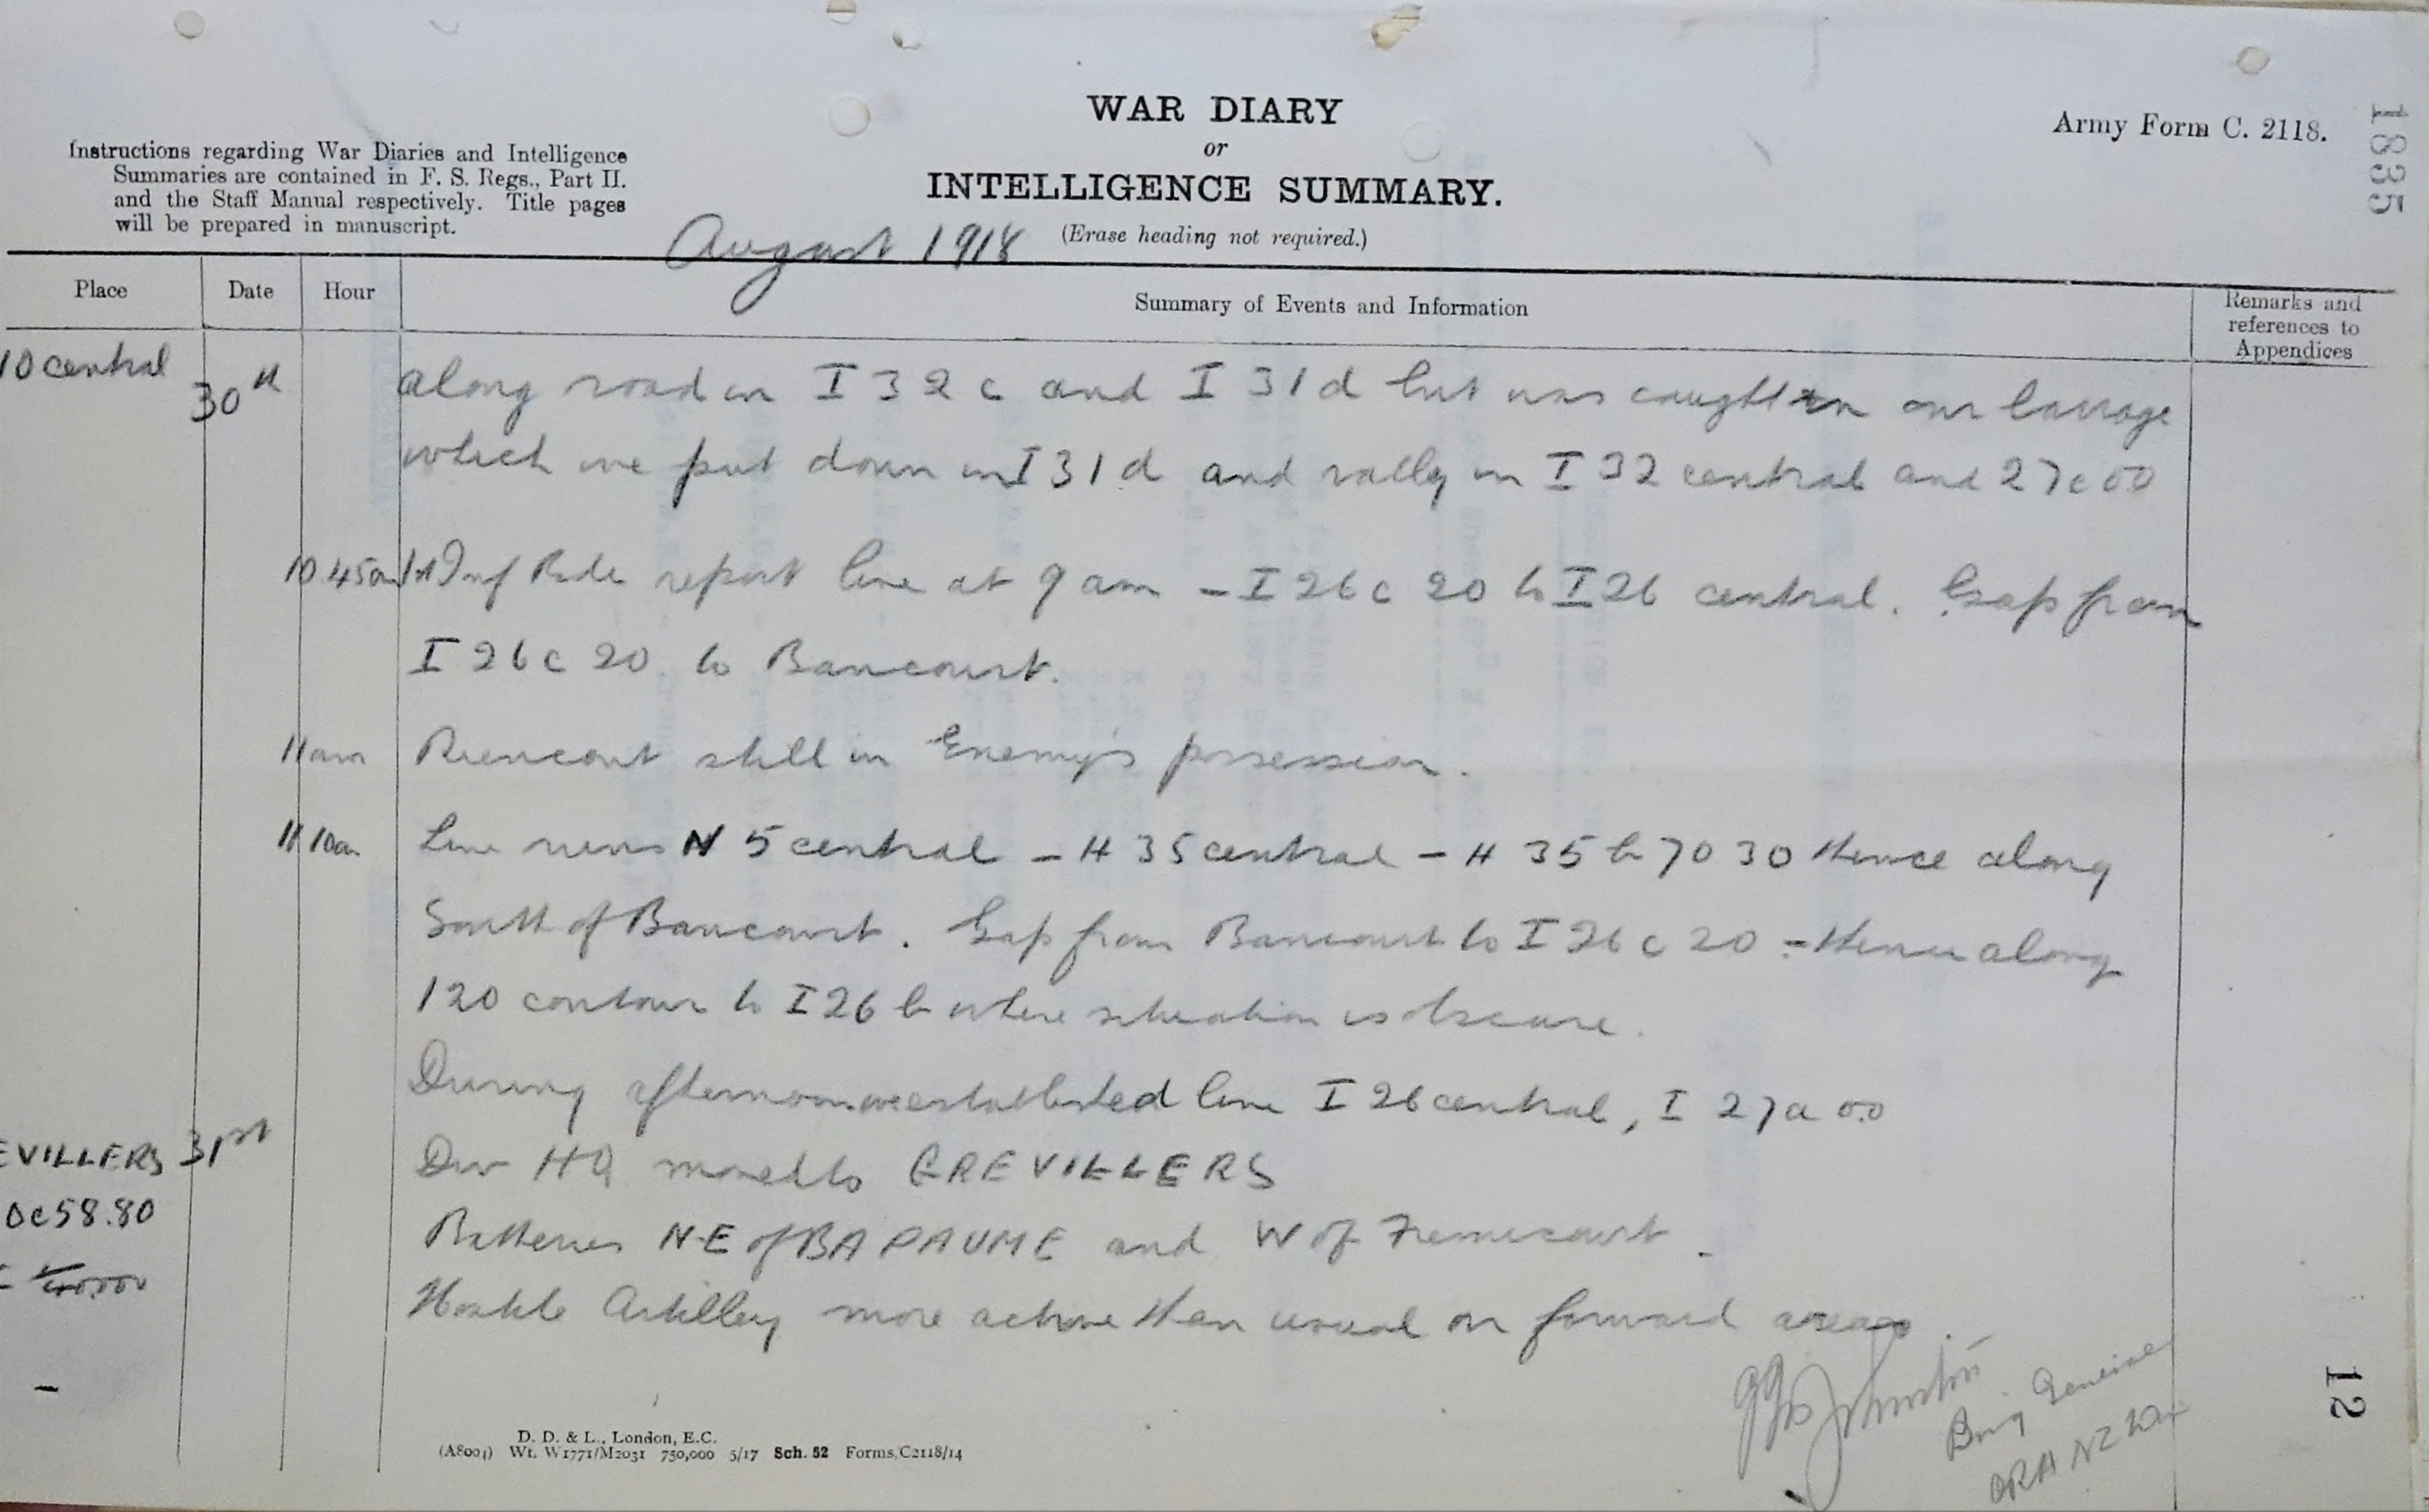 WAR DIARY
or
INTELLIGENCE SUMMARY.
(Erase heading not required.)
Army Form C. 2118.
1835
Instructions regarding War Diaries and Intelligence
Summaries are contained in F. S. Regs., Part II.
and the Staff Manual respectively. Title pages
will be prepared in manuscript.
August 1918
Place Date Hour Summary of Events and Information Remarks and references to Appendices
10 central 30th along road in I 32 c and I 31 d but was caught in our barrage
which we put down in I 31 d and rally in I 32 central and 27 c 00
10.45am 1st Inf Bde report line at 9 am - I 26 c 20 to I 26 central. Gap from
I 26 c 20 to Bancourt.
11am Riencourt still in Enemy's possession.
11 10am Line runs N 5 central - H 35 central - H 35 b 70 30 thence along
South of Bancourt. Gap from Bancourt to I 26 c 20 - thence along
120 contour to I 26 b where situation is obscure.
During afternoon we established line I 26 central, I 27 a 00
EVILLERS 31st Div HQ moved to GREVILLERS
0c58.80 Batteries N-E of BAPAUME and W of Fremicourt.
Hostile Artillery more active than usual on forward areas.
Johnston
Brig General
CRA NZ Div
12
D. D. & L., London, E.C.
(A8004) Wt. W1771/M2031 750,000 5/17 Sch. 52 Forms/C2118/14